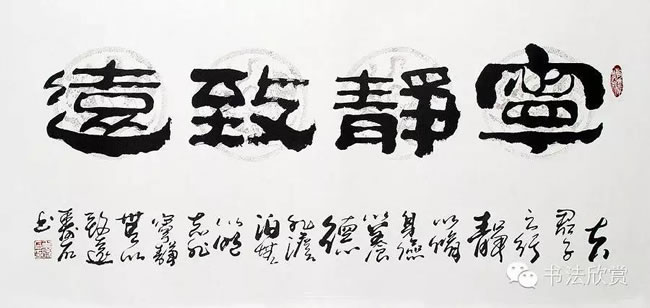 寧靜致遠
夫
君子
之行
靜
以修
身儉
以養
德
非澹
泊無
以明
志非
寧靜
無以
致遠
书法欣赏